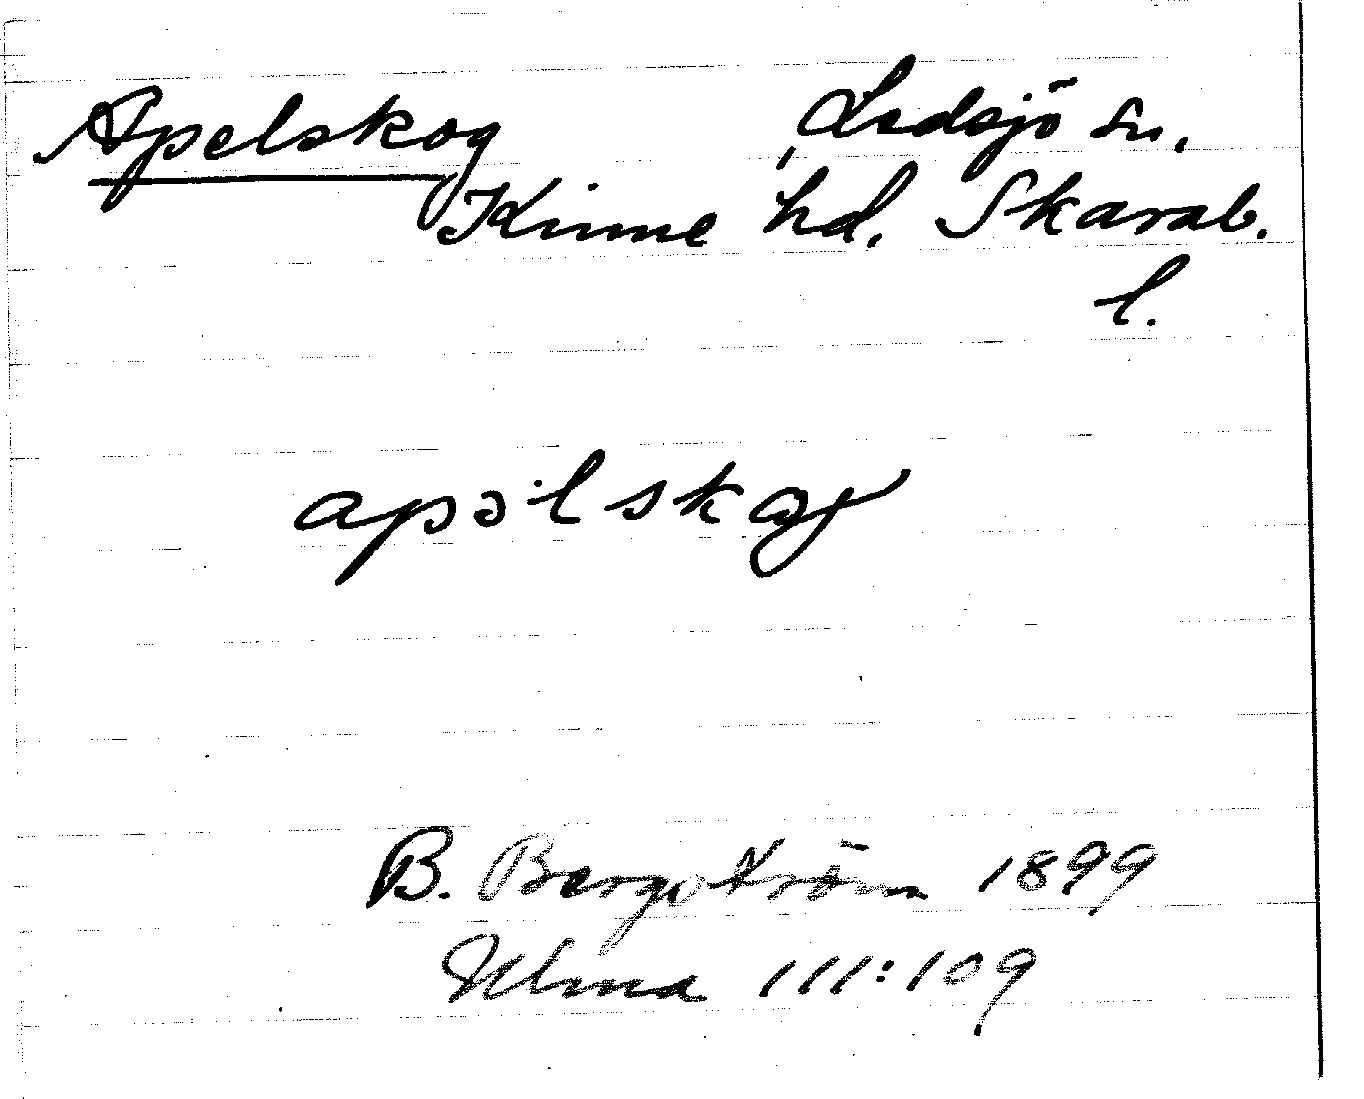 Apelskog Ledsjö sn,
Kinne hd. Skarab.
l.
apɔ·lskog
B. Bergström 1899
Ulma 111:109